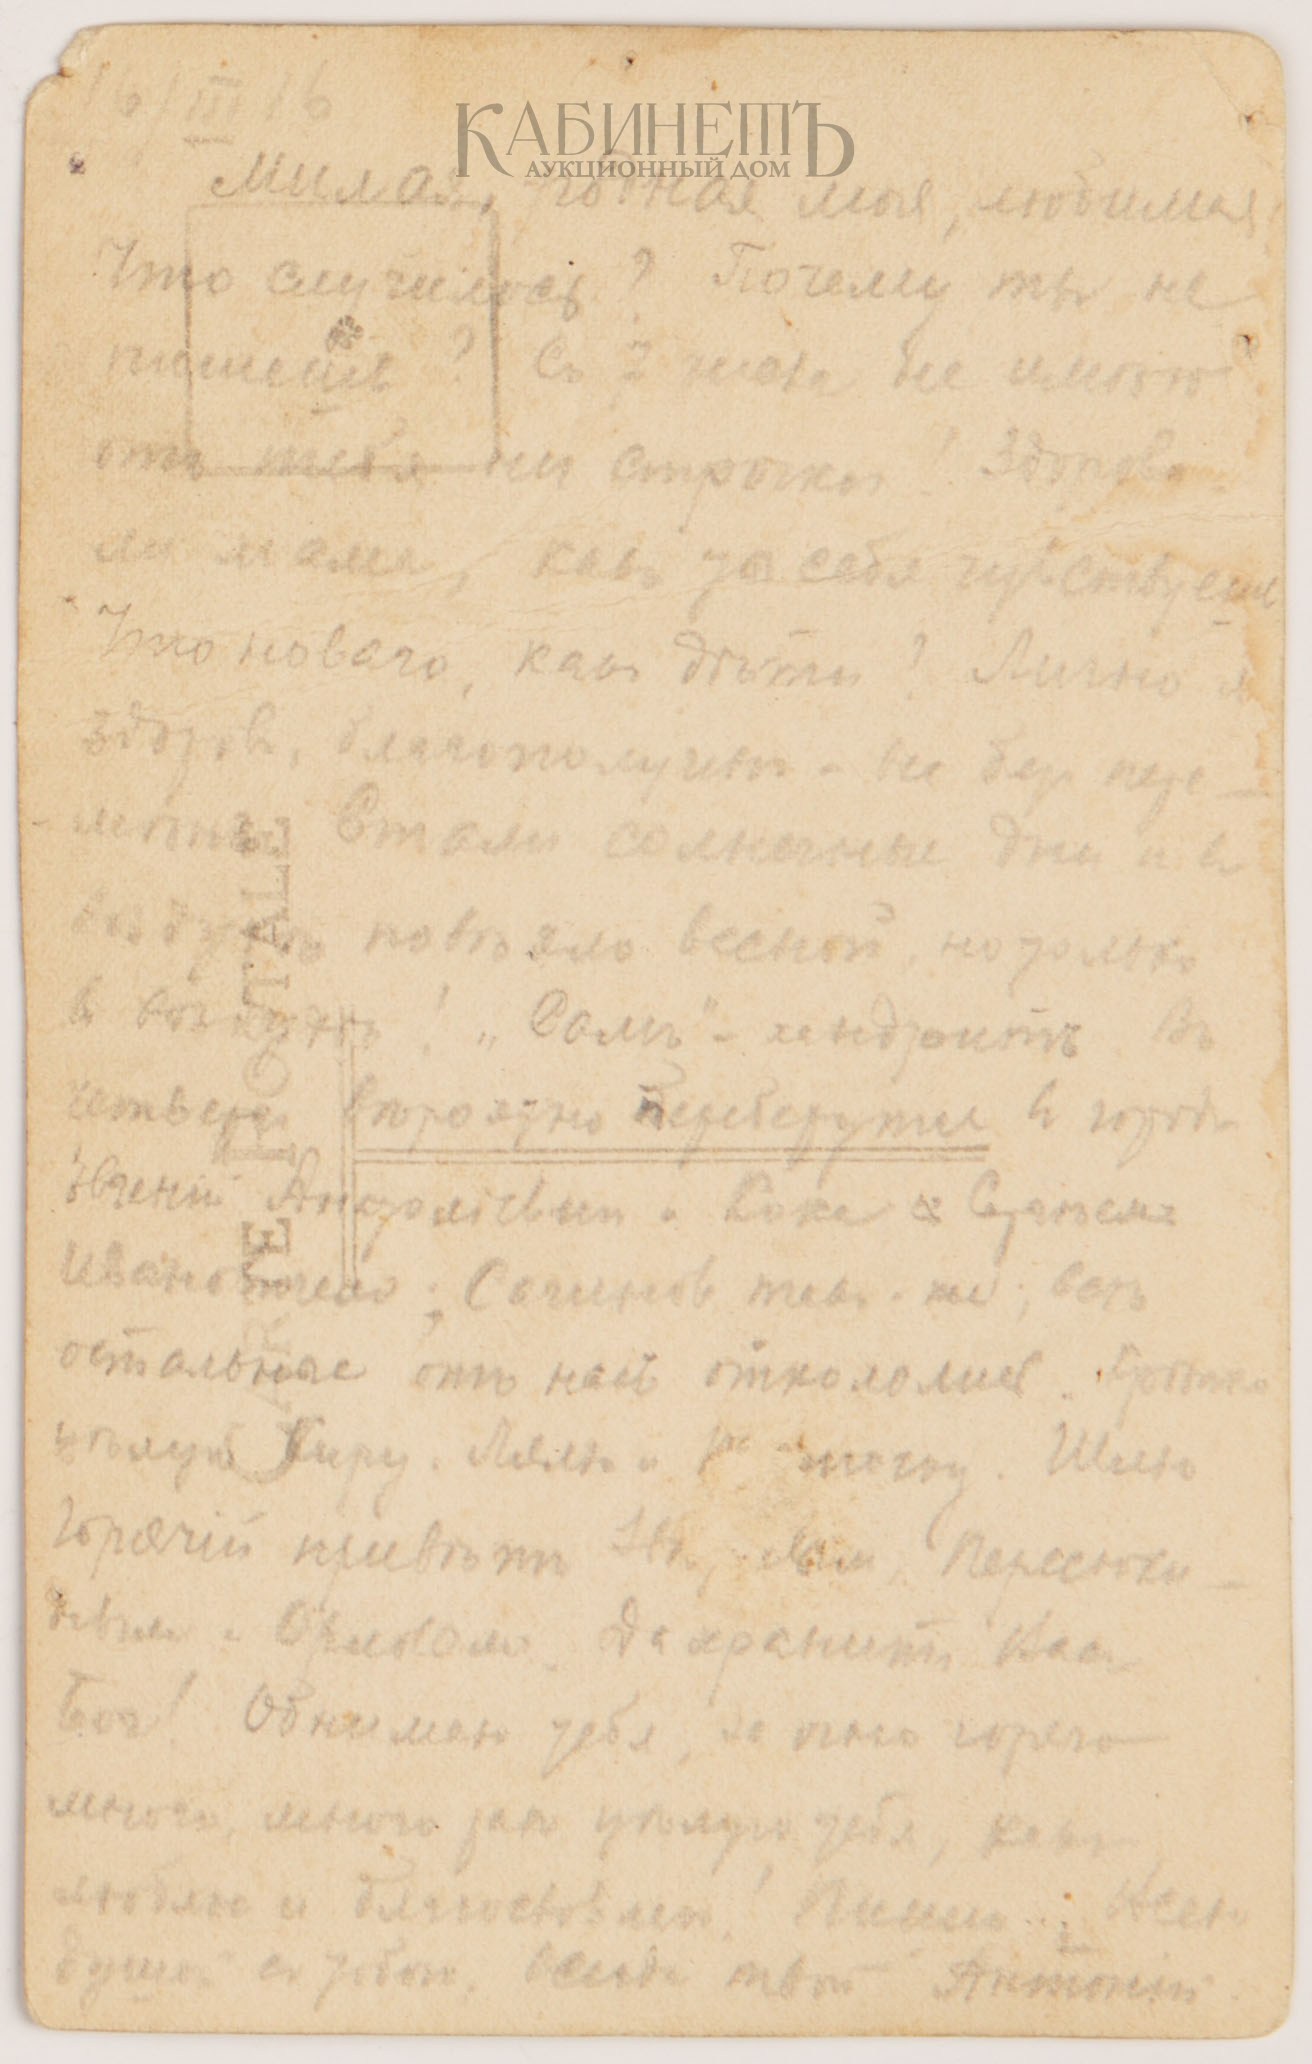 16/III 16
КАБИНЕТЪ
АУКЦИОННЫЙ ДОМ
Милая, родная моя, любимая
Что случилось? Почему ты не
пишешь? Съ 7 не имѣю
отъ тебя ни строчки! Здорова
ли мама, какъ ты себя чувствуешь
Что новаго, какъ дѣти? Лично я
здоров, благополученъ - не без пере-
мѣнъ. Стали солнечные дни и в
воздухѣ повѣяло весной, но только
в воздухѣ! „Самъ" - хандритъ. Въ
четвергъ вѣроятно переберутся в город
Евгеній Анатоліевич и с
Ивановичемъ; так-же, всѣ
остальные отъ насъ откололись.
цѣлуй Киру, Лялю и Шлю
Горячій привѣтъ
и Орловым. Да хранитъ Вас
Бог! Обнимаю тебя, горячо
много, много разъ цѣлую тебя, какъ
люблю и благословляю! Пиши. Всею
душой съ тобою, всегда твой Антоній.
CARTE POSTALE